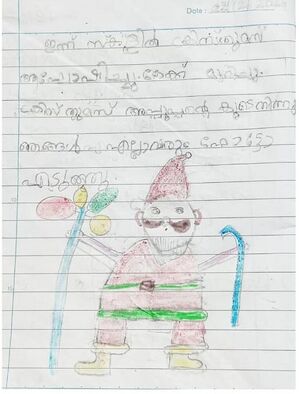 Date: 22/12/2023
ഇന്ന് സ്കൂളിൽ ക്രിസ്തുമസ്
ആഘോഷിച്ചു. കേക്ക് മുറിച്ചു.
ക്രിസ്തുമസ് അപ്പൂപ്പന്റെ കൂടെ നിന്നു
ഞങ്ങൾ എല്ലാവരും ഫോട്ടോ
എടുത്തു.